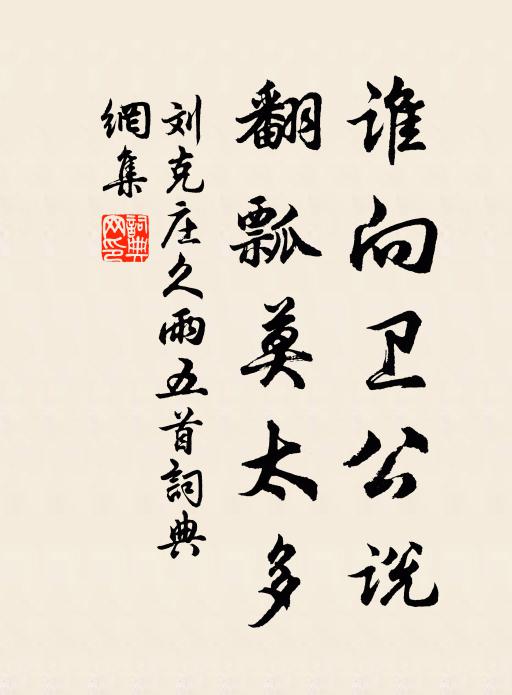 谁向卫公说
翻瓢莫太多
刘克庄久雨五首詞典
網集
詞典
网印